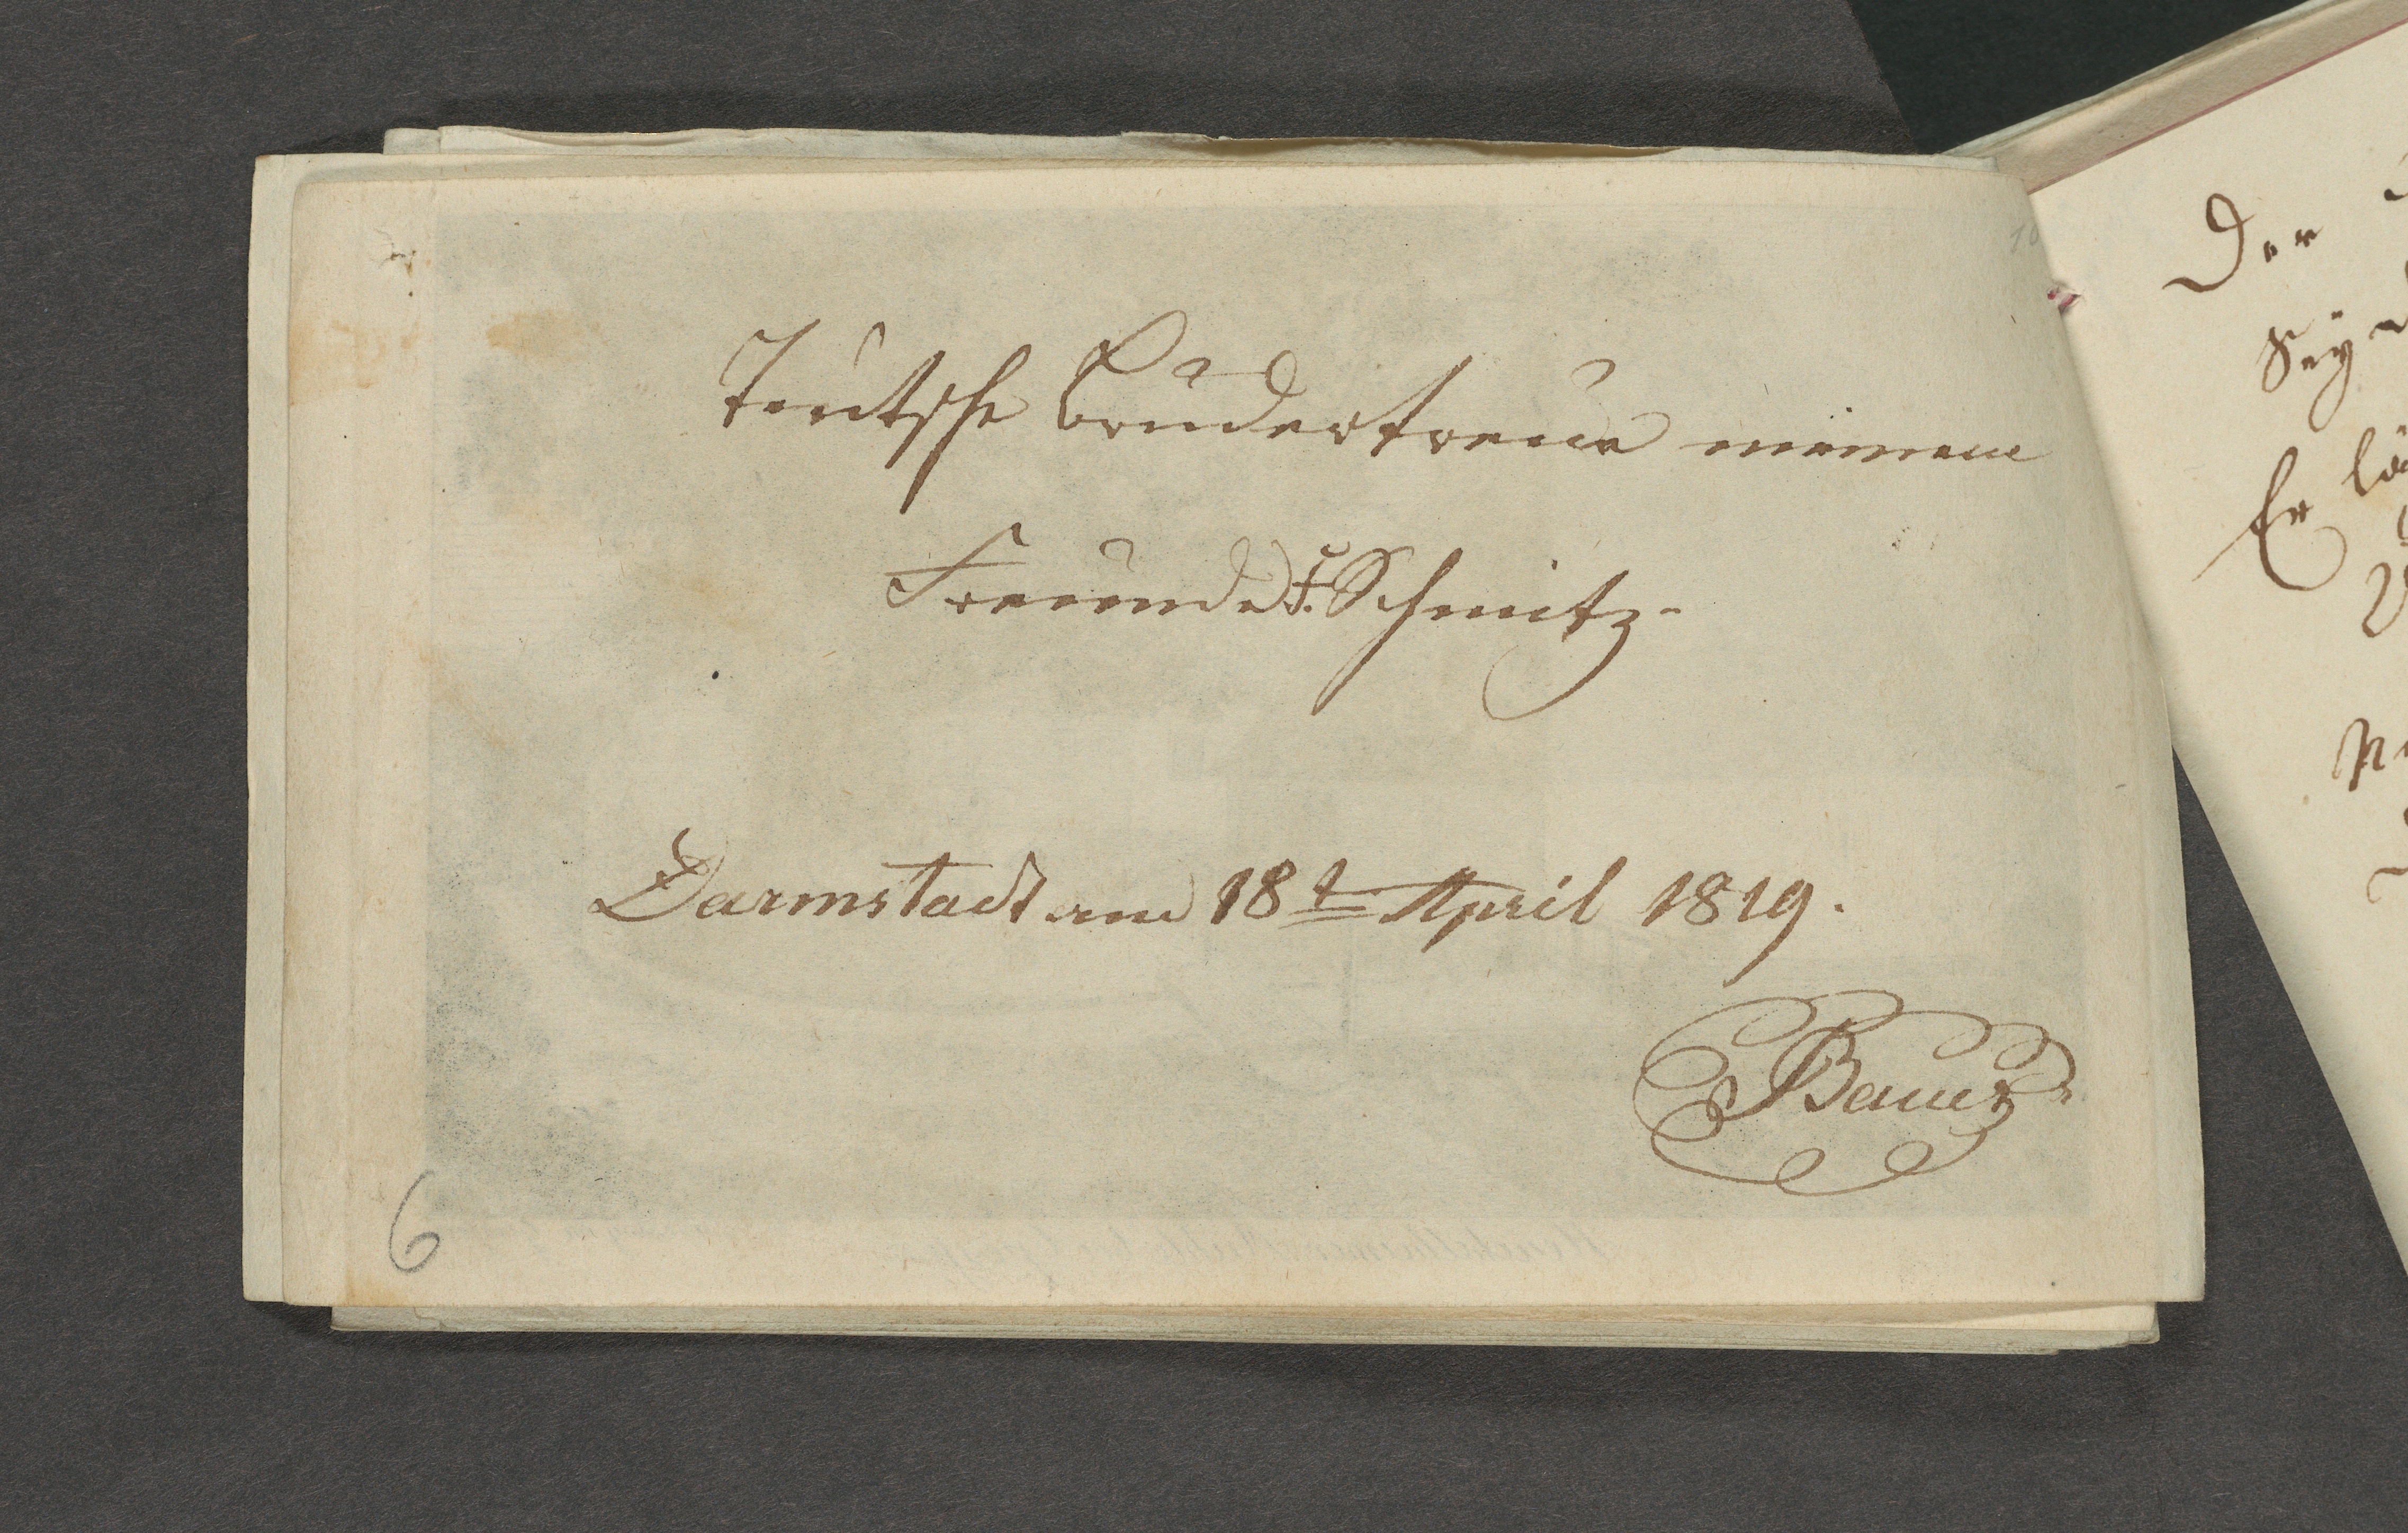 Teutsche Brudertreue meinem
Freunde F. Schmitz.
Darmstadt am 18t April 1819.
Bauer
6
10
Der
Sey
Er